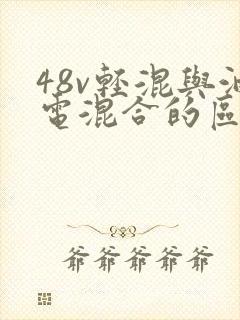 48v輕混與油
電混合的區
爺爺爺爺爺